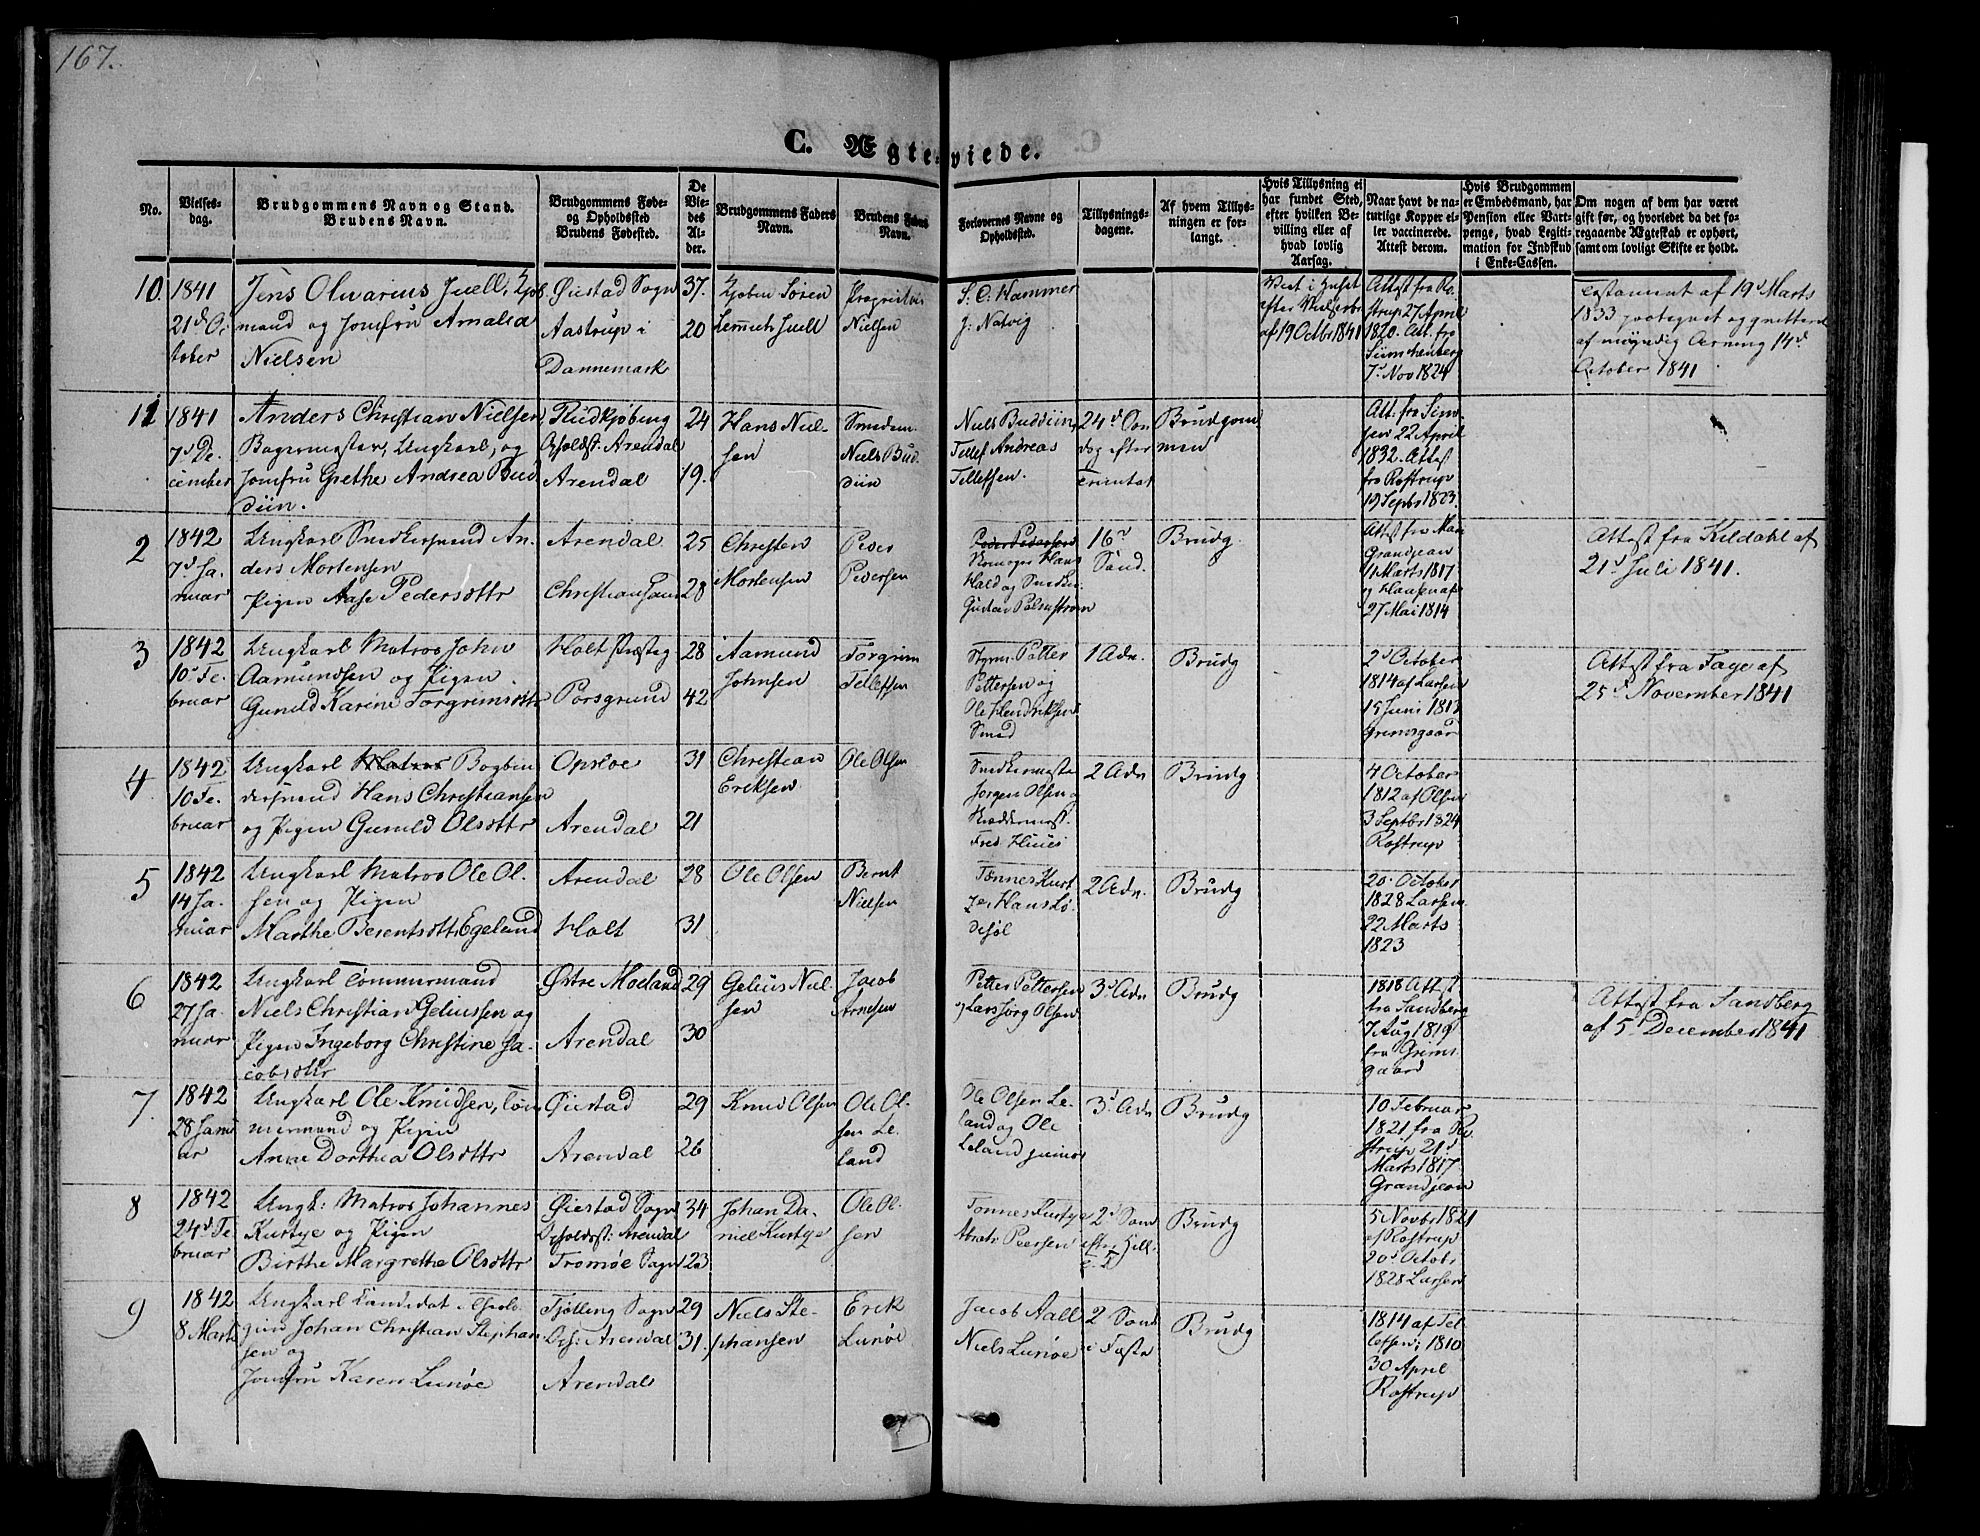 167.
C. Ægteviede.
No.
Vielses-
dag.
Brudgommens Navn og Stand.
Brudens Navn.
Brudgommens Føde-
og Opholdssted
Brudens Fødested.
De
Vie-
des
Al-
der.
Brudgommens Faders
Navn.
Brudens Faders
Navn.
Forlovernes Navne og
Opholdssted.
Tillysnings-
dagene.
Af hvem Tillys-
ningen er for-
langt.
Hvis Tillysning ei
har fundet Sted,
efter hvilken Be-
villing eller af
hvad lovlig
Aarsag.
Naar havt de na-
turlige Kopper el-
ler vaccinerede.
Attest derom.
Hvis Brudgommen
er Embedsmand, har
Pension eller Vart-
penge, hvad Legiti-
mation for Indskud
i Enke-Cassen.
Om nogen af dem har været
gift før, og hvorledes da det fo-
regaaende Ægteskab er ophørt,
samt om lovligt Skifte er holdt.
10. 1841
21d Oc
tober
Jens Oluarius Juell, Kjøb
mand og Jomfru Amalia
Nielsen
Øiestad Sogn
Aastrup i
Dannemark
37.
20
Kjøbm Søren
Lemmich Juell
Nielsen
S. C. Hammer
J: Natvig
Viet i Huset
efter
af 19 Octbr 1841
Attest fra Ro
strup 27 April
1820. Att. fra
7d Nov 1824
Testament af 19d Marts
1833
af 14d
October 1841
11 1841
7d De
cember
Anders Christian Nielsen,
Bagermester, Ungkarl, og
Jomfru Grethe Andrea Bud
diin.
Rudkjøbing
Opholdst: Arendal
Arendal
24
19.
Hans Niel-
sen
Smedem.
Niels Bud
diin
Niels Buddiin,
Tellef Andreas
Tellefsen.
24d Søn
dag efter
Trinitat
Brudgom
men
Att: fra Sim
sen 22 April
1832. Attest
fra Rostrup
19 Septbr 1823
2 1842
7d Ja-
nuar
Ungkarl Snedkersvend An-
ders Mortensen
Pigen Aase Pedersdttr
Arendal
Christiansand
25
28
Christen
Mortensen
Peder
Pedersen
Peder Pedersen
Hans
Hald og Snedker
Gustav Palmstrøm
16d
Sønd.
Brudg.
Attest fra
Grandjean
11 Marts 1817
27 Mai 1814
Attest fra Kildahl af
21d Juli 1841.
3 1842
10d Fe-
bruar
Ungkarl Matros John
Aamundsen og Pigen
Gunild Karine Torgrimsdttr
Holt Præsteg
Porsgrund
28
42
Aamund
Johnsen
Torgrim
Tellefsen
Styrm. Petter
Pettersen og
Ole Hendriksen
Smed
1 Adv.
Brudg
2d October
1814 af Larsen
15 Juni 1813
Grimsgaar
Attest fra Faye af
25d November 1841
4 1842
10 Fe-
bruar
Ungkarl Matros Bogbin
dersvend Hans Christiansen
og Pigen Gunild Olsdttr
Opsloe
Arendal
31
21
Christian
Eriksen
Ole Olsen
Snedkermester
Jørgen Olsen og
Skreddermest.
2 Adv
Brudg
4 October
1812 af Olsen
3 Septbr 1824
Rostrup
5 1842
14 Ja-
nuar
Ungkarl Matros Ole Ol-
sen og Pigen
Marthe Berentsdttr Egeland
Arendal
Holt
28
31
Ole Olsen
Bernt
Nielsen
Tønnes Kurt
2 Adv.
Brudg
20 October
1828 Larsen
22 Marts
1823
6 1842
27 Ja-
nuar
Ungkarl Tømmermand
Niels Christian Geliussen og
Pigen Ingeborg Christine Ja-
cobsdttr
Østre Moeland
Arendal
29
30
Gelius Niel
sen
Jacob
Arnesen
Petter Pettersen
og Lars Jørg Olsen
3d Adv
Brudg
1818 Attest
fra Sandberg
7 Aug 1819
fra Grims
gaard
Attest fra Sandberg
af 5d December 1841
7 1842
28 Janu
ar
Ungkarl Ole Knudsen, Tøm
mermand og Pigen
Anne Dorthea Olsdttr
Øiestad
Arendal
29
26
Knud Olsen
Ole Ol-
sen Le-
land
Ole Olsen Le-
land og Ole
Leland junior
3d Adv
Brudg
10 Februar
1821 fra Ro
strup 21d
Marts 1817
Grandjean
8 1842
24d Fe
bruar
Ungk: Matros Johannes
Kurtze og Pigen
Birthe Margrethe Olsdttr
Øiestad Sogn
Opholdst: Arendal
Tromøe Sogn
34
23
Johan Da-
niel Kurtze
Ole Ol-
sen
Tønnes Kurtze
Peersen
2d Sønd
efter Hell.
3 K
Brudg
5 Novbr 1821
af Rostrup
20d Octobr
1828 Larsen
9 1842
8 Marts
Ungkarl Candidat Theolo-
gin Johan Christian Stephan
sen og
Jomfru Karen Lunøe
Tjølling Sogn
Oph: Arendal
Arendal
29
31.
Niels Ste-
phansen
Erik
Lunøe
Jacob Aall
Niels Lunøe
2 Sønd
i Faste
Brudg
1814 af Tel
lefsen; 1810
30 April
Rostrup